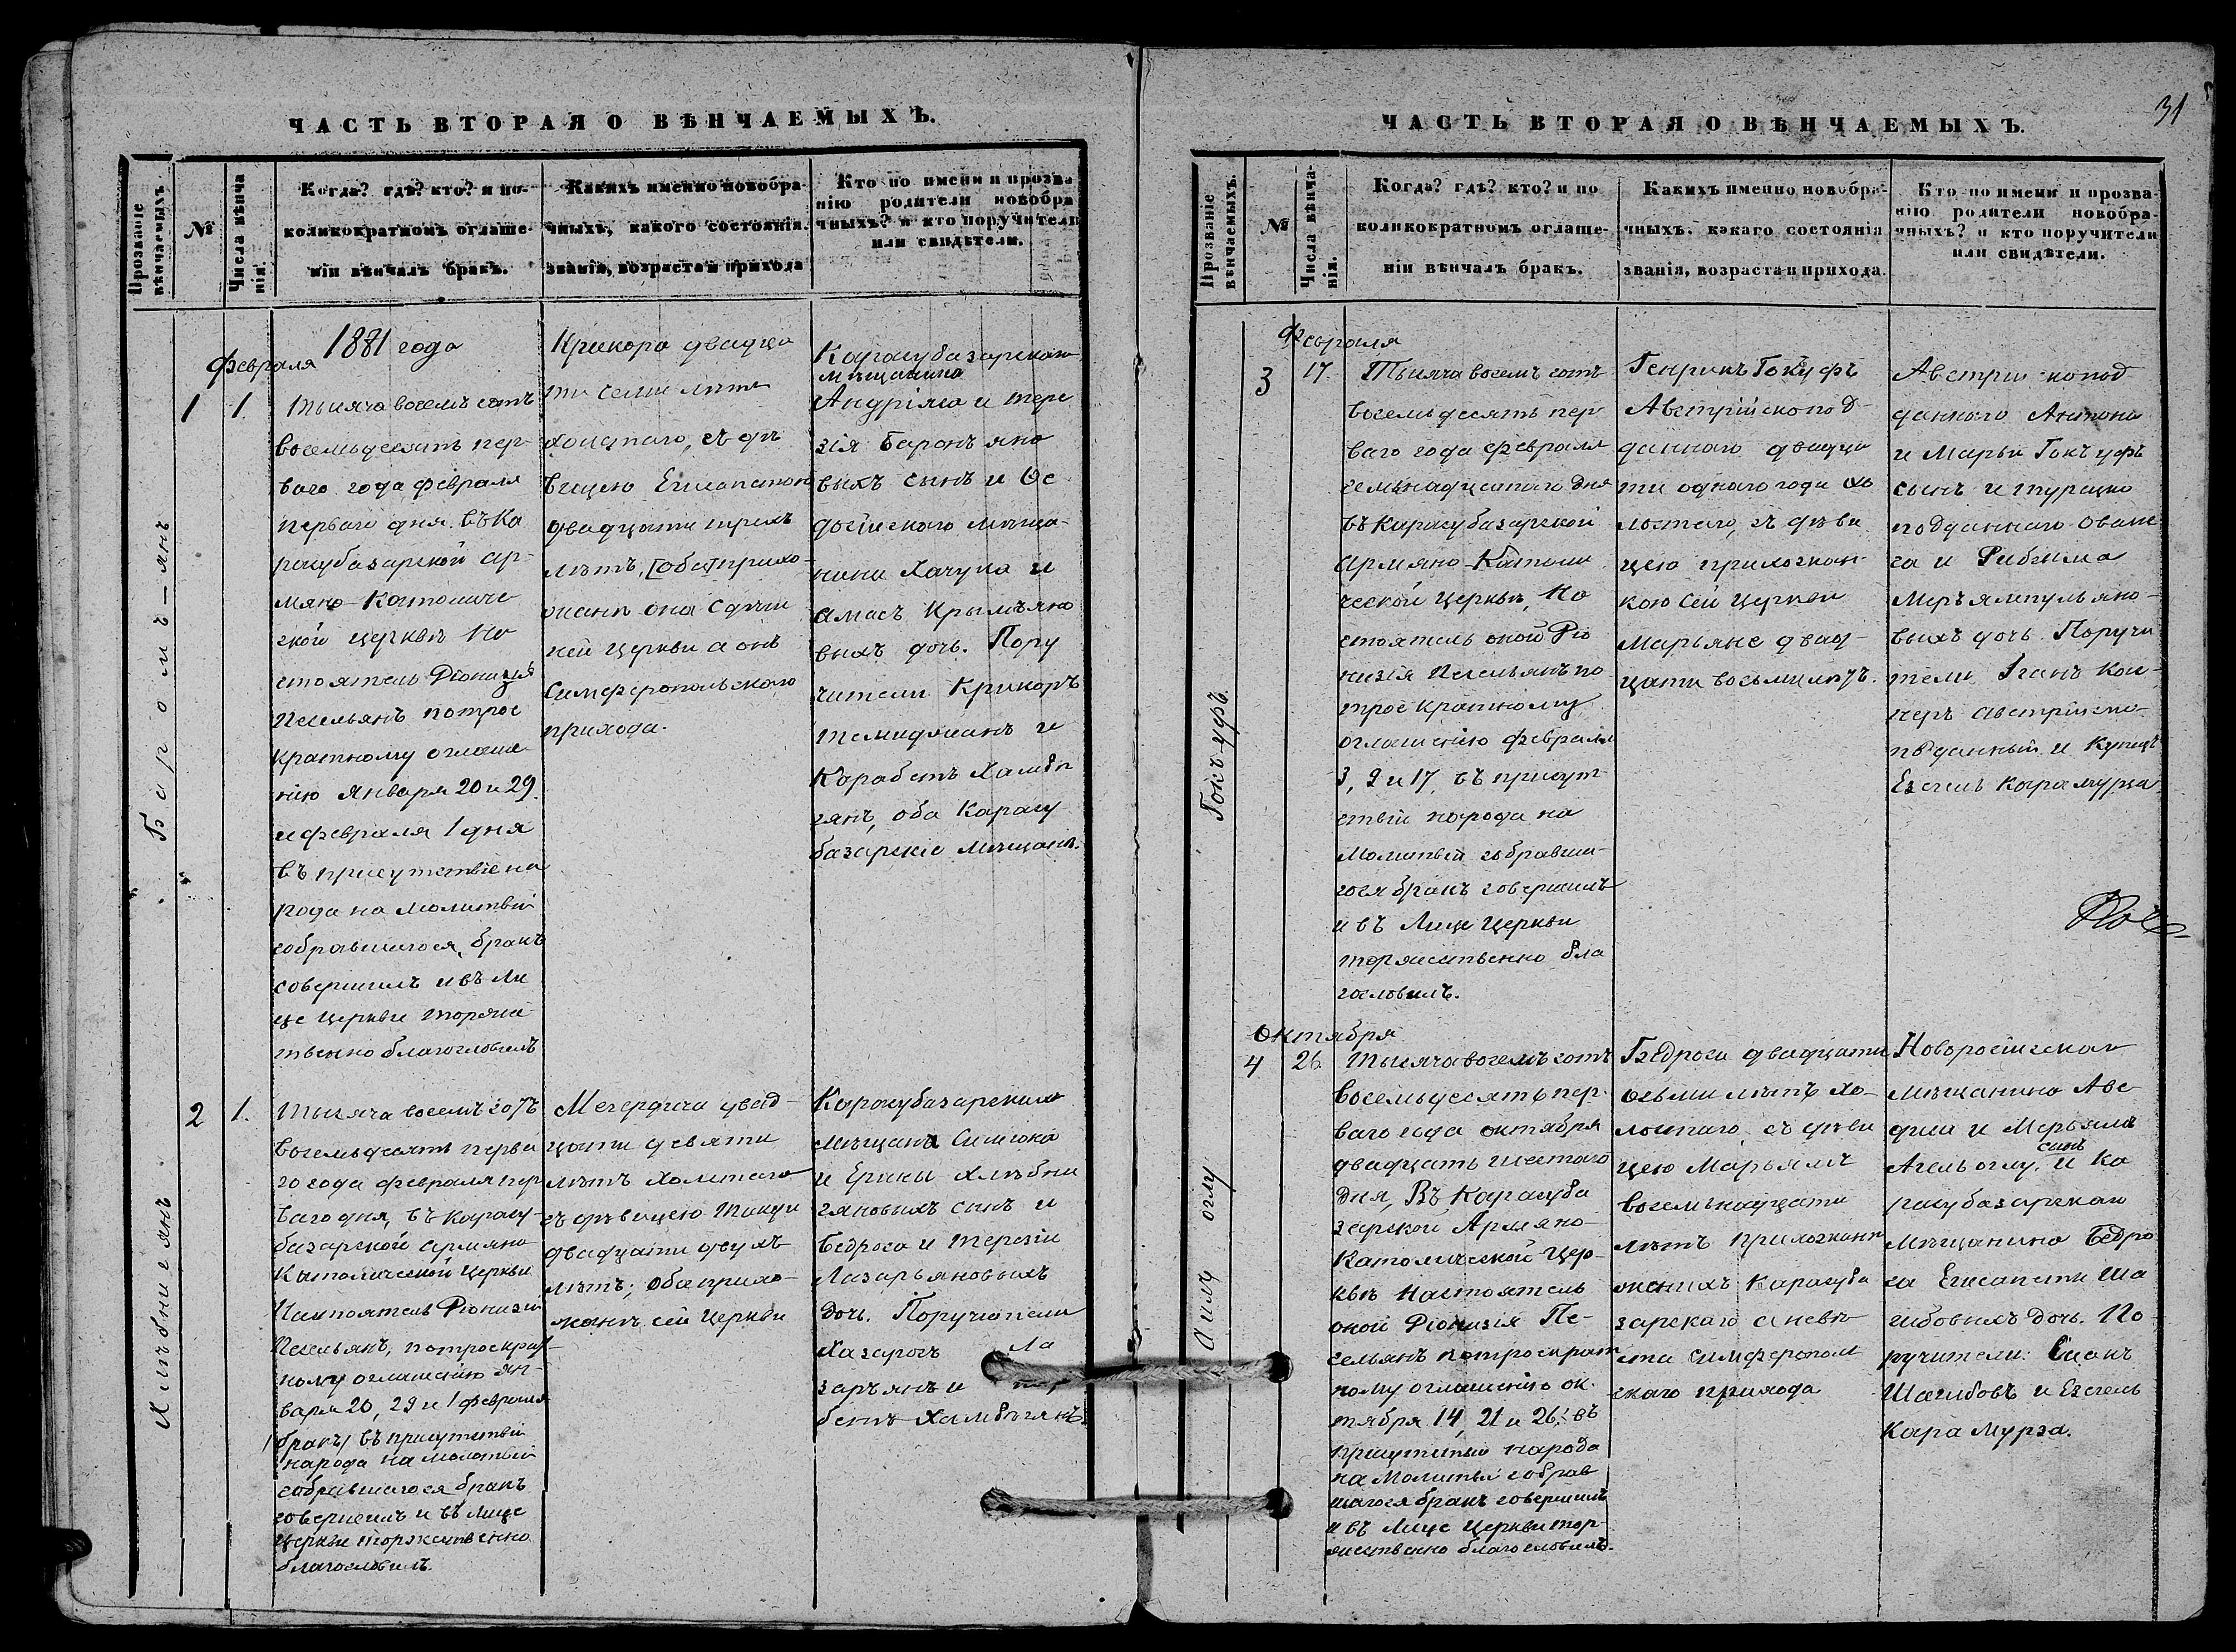 ЧАСТЬ ВТОРАЯ О ВѢНЧАЕМЫХЪ.
Прозваніе вѣнчаемыхъ.
№
Числа вѣнча
нія.
Когда? гдѣ? кто? и по-
коликократномъ оглаше-
ніи вѣнчалъ бракъ.
Какихъ именно новобра-
чныхъ, какого состоянія.
званія, возраста и прихода
Кто по имени и прозва
нію родители новобра
чныхъ? и кто поручители
или свидѣтели.
Баромъ-янъ
1881 года
Февраля
1
1.
Тысяча восемъ сотъ
восемьдесятъ пер-
ваго года февраля
перваго дня въ Ка
расубазарской ар-
мяно-Католиче
ской церквѣ На
стоятель Діонизія
Песельянъ потрое
кратному оглаше
нію Января 20 и 29
и февраля 1 дня
въ присутствіе на
рода на молитвѣй
собравшагося, бракъ
совершилъ и въ Ли
це церкви торже
твенно благословилъ
Крикора двадца
ти семи лѣтъ
холостаго, съ дѣ
вицею
двадцати трехъ
лѣтъ, [оба] прихо-
жанъ она
ней церкви а онъ
Симферопольскаго
прихода.
Карасубазарскаго
мѣщанина
Андріяса и Тере
зія Баронъ яно
выхъ сынъ и Ѳе
досійскаго мѣща-
нина Хачука и
Крымъяно
выхъ дочь. Пору
чители Крикоръ
и
Карабетъ
гянъ, оба Карасу
базарскіе мѣщане.
Хлѣбнигянъ
2
1.
Тысяча восемъ сотъ
восемьдесятъ перва
го года февраля пер
ваго дня, въ Карасу-
базарской армяно
Католической Церкви
Настоятель Діонизія
Песельянъ, потроекрат-
ному оглашенію ян-
варя 20, 29 и 1 февраля
/бракъ/ въ присутствіи
народа на молитвѣй
собравшагося бракъ
совершилъ и въ Лице
Церкви торжественно
благословилъ.
Мегердича двад-
цати девяти
лѣтъ холостаго
съ дѣвицею
двадцати двухъ
лѣтъ; оба прихо-
жанъ сей Церкви
Карасубазарскихъ
мѣщанъ Симона
и Ерины Хлѣбни
гяновыхъ сынъ и
Бедроса и Терезіи
Лазарьяновыхъ
дочь. Поручители
Хазаросъ Ла
заръянъ и
бетъ
31
ЧАСТЬ ВТОРАЯ О ВѢНЧАЕМЫХЪ.
Прозваніе вѣнчаемыхъ.
№
Числа вѣнча-
нія.
Когда? гдѣ? кто? и по
коликократномъ оглаше-
ніи вѣнчалъ бракъ.
Какихъ именно новобра-
чныхъ. какаго состоянія
званія, возраста и прихода.
Кто по имени и прозва-
нію родители новобра-
чныхъ? и кто поручители
или свидѣтели.
Гокъ-уфъ.
Февраля
3
17.
Тысяча восемъ сотъ
восемьдесятъ пер
ваго года февраля
семьнадцатаго дня
въ Карасубазарской
Армяно-Католи
ческой церкви, На
стоятель оной Діо
низія Песельянъ по
троекратному
оглашенію февраля
3, 9 и 17, въ присут
ствіи народа на
Молитвѣй собравша-
гося бракъ совершилъ
и въ Лице Церкви
торжественно бла
гословилъ.
Генрикъ Гокъуфъ
Австрійскопод-
даннаго двадца
ти однаго года хо
лостаго, съ дѣви
цею прихожан-
кою сей церкви
Марьяне двад-
цати восьми лѣтъ.
Австрійскопод
даннаго Антона
и Марьи Гокъуфъ
сынъ и турецко
подданнаго Оване
са и Рибсима
выхъ дочь. Поручи
тели
Австрійско-
подданный и Купецъ
Езекель Карамурза
Октября
4
26
Тысяча восемъ сотъ
восемьдесятъ пер-
ваго года октября
двадцать шестаго
дня, Въ Карасуба
зарской Армяно-
Католической Цер-
квѣ Настоятель
оной Діонизія Пе-
сельянъ потроекрат
ному оглашенію ок-
тября 14, 21 и 26, въ
присутствіи народа
на Молитвѣй собрав
шагося бракъ совершилъ
и въ Лице Церкви тор-
жественно благословилъ.
Бедроса двадцати
осьми лѣтъ хо-
лостаго, съ дѣви
цею Марьямъ
восемьнадцати
лѣтъ прихожанъ
женихъ Карасуба
зарскаго а невѣ-
ста Симферополь
скаго прихода
Новоросійскаго
мѣщанина Аве
дика и Марьямъ
сынъ
оглу. и Ка
расубазарскаго
мѣщанина Бедро
са Егисапети Ша
гибовыхъ дочь. По
ручители:
Шагибовъ и Езекель
Кара Мурза.